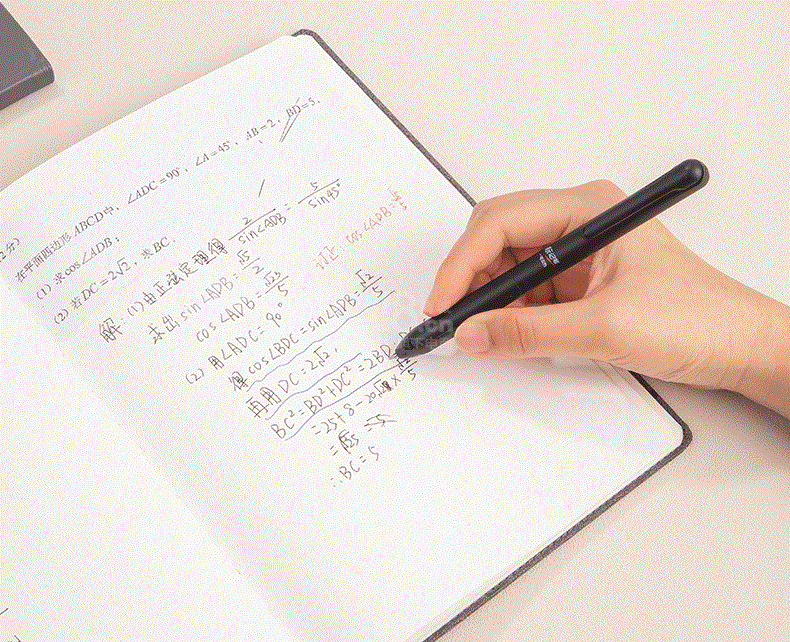 2分)
在平面四边形ABCD中，∠ADC=90°，∠A=45°，AB=2，BD=5.
(1) 求cos∠ADB；
(2) 若DC=2√2，求BC.
解：(1)由正弦定理得 2/sin∠ADB = 5/sin45°
求出 sin∠ADB=√2/5
cos∠ADB=√23/5
(2) 用∠ADC=90°
得 cos∠BDC=sin∠ADB=√2/5
再用DC=2√2，
BC²=BD²+DC²-2BD
=25+8-20√2×√2/5
=5
∴BC=5
cos∠ADB